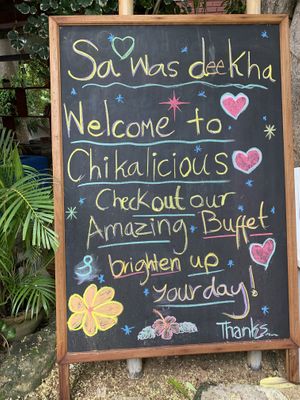 Sa was deekha
Welcome to
Chikalicious
Check out our
Amazing Buffet
& brighten up
your day!
Thanks...